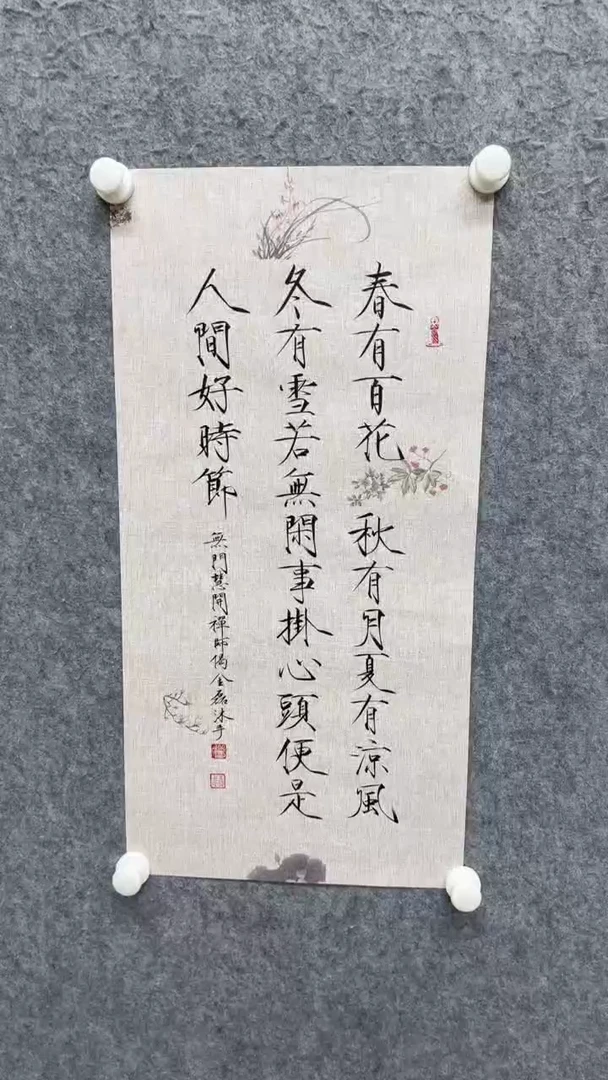 春有百花秋有月夏有涼風
冬有雪若無閑事掛心頭便是
人間好時節
無門慧開禪師偈金磊沐手